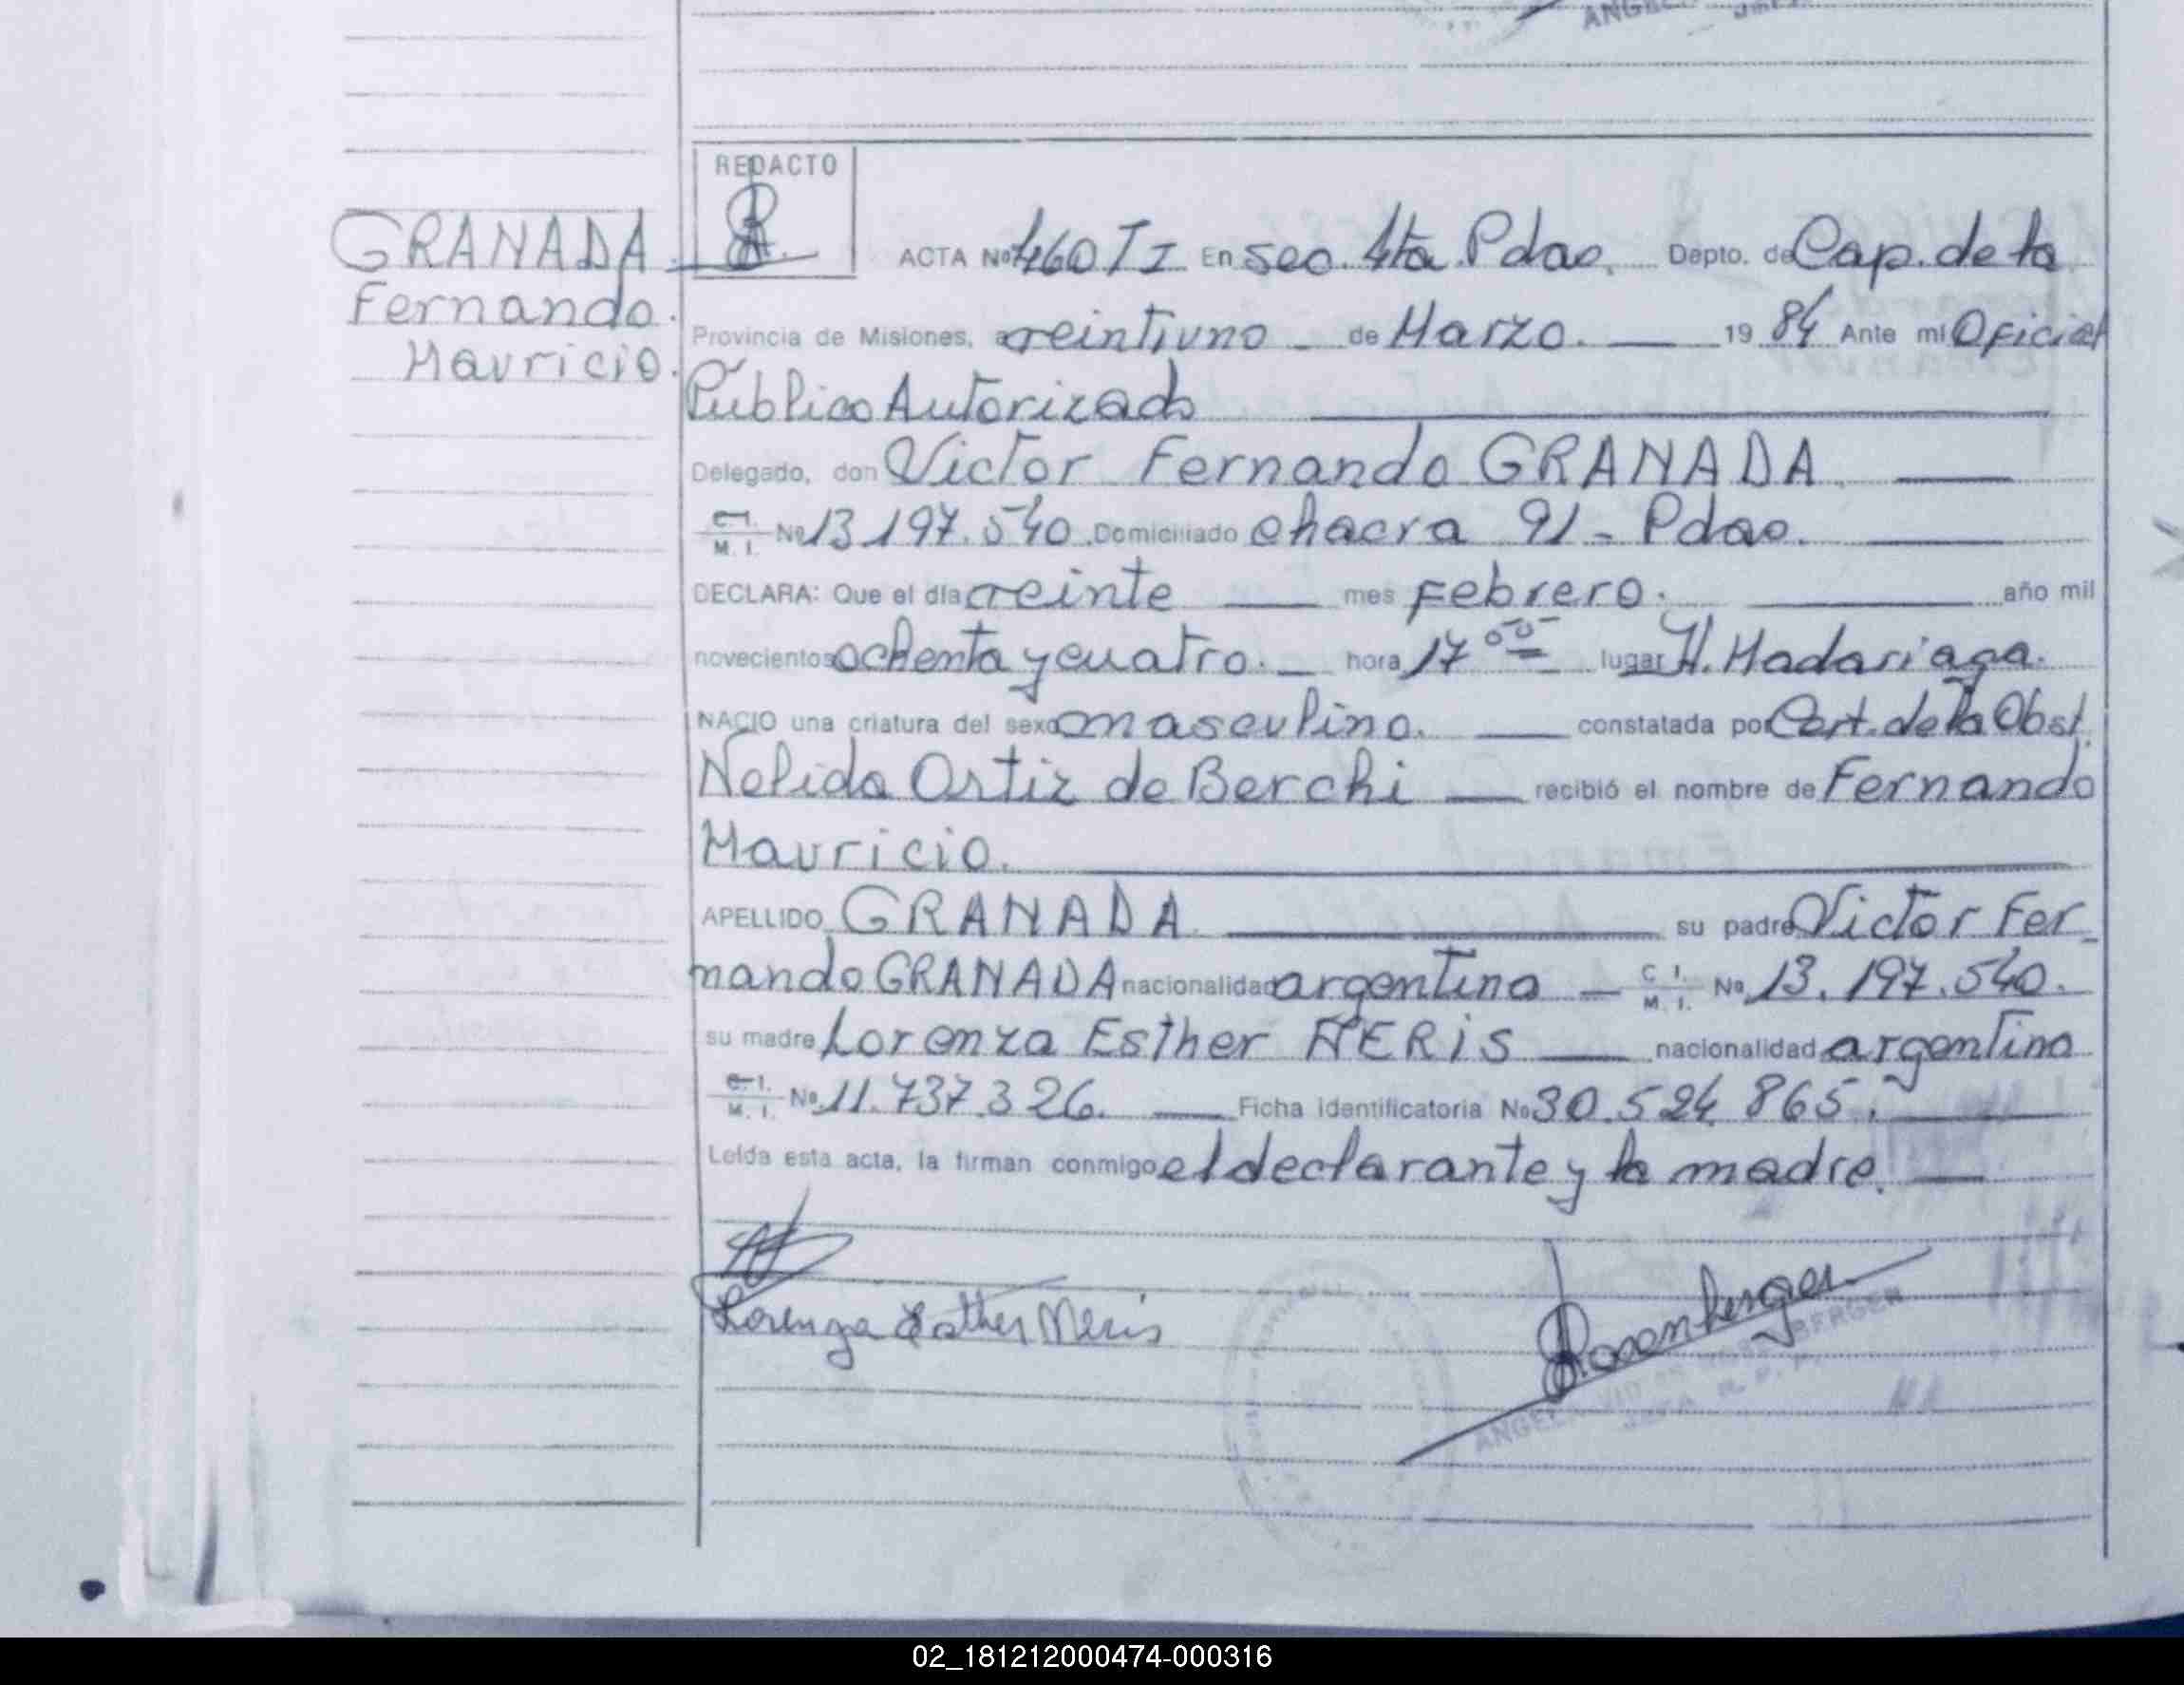 GRANADA.
Fernando.
Mauricio.
REDACTO
ACTA Nº 460 TI En sec. 4ta Pdas. Depto. de Cap. de la
Provincia de Misiones, a veintiuno de Marzo. 19 84 Ante mi Oficial
Público Autorizado
Delegado, don Victor Fernando GRANADA
C.I. M.I. Nº 13.197.540 Domiciliado chacra 91 - Pdas.
DECLARA: Que el día veinte mes Febrero. año mil
novecientos ochenta y cuatro. hora 17 lugar H. Madariaga.
NACIO una criatura del sexo masculino. constatada por Cert. de la Obst.
Nelida Ortiz de Berchi recibió el nombre de Fernando
Mauricio.
APELLIDO GRANADA su padre Victor Fer-
nando GRANADA nacionalidad argentina C.I. M.I. Nº 13.197.540.
su madre Lorenza Esther NERIS nacionalidad argentina
C.I. M.I. Nº 11.737.326. Ficha identificatoria Nº 30.524.865.
Leída esta acta, la firman conmigo el declarante y la madre.
Lorenza Esther Neris
Rosenberger
02_181212000474-000316